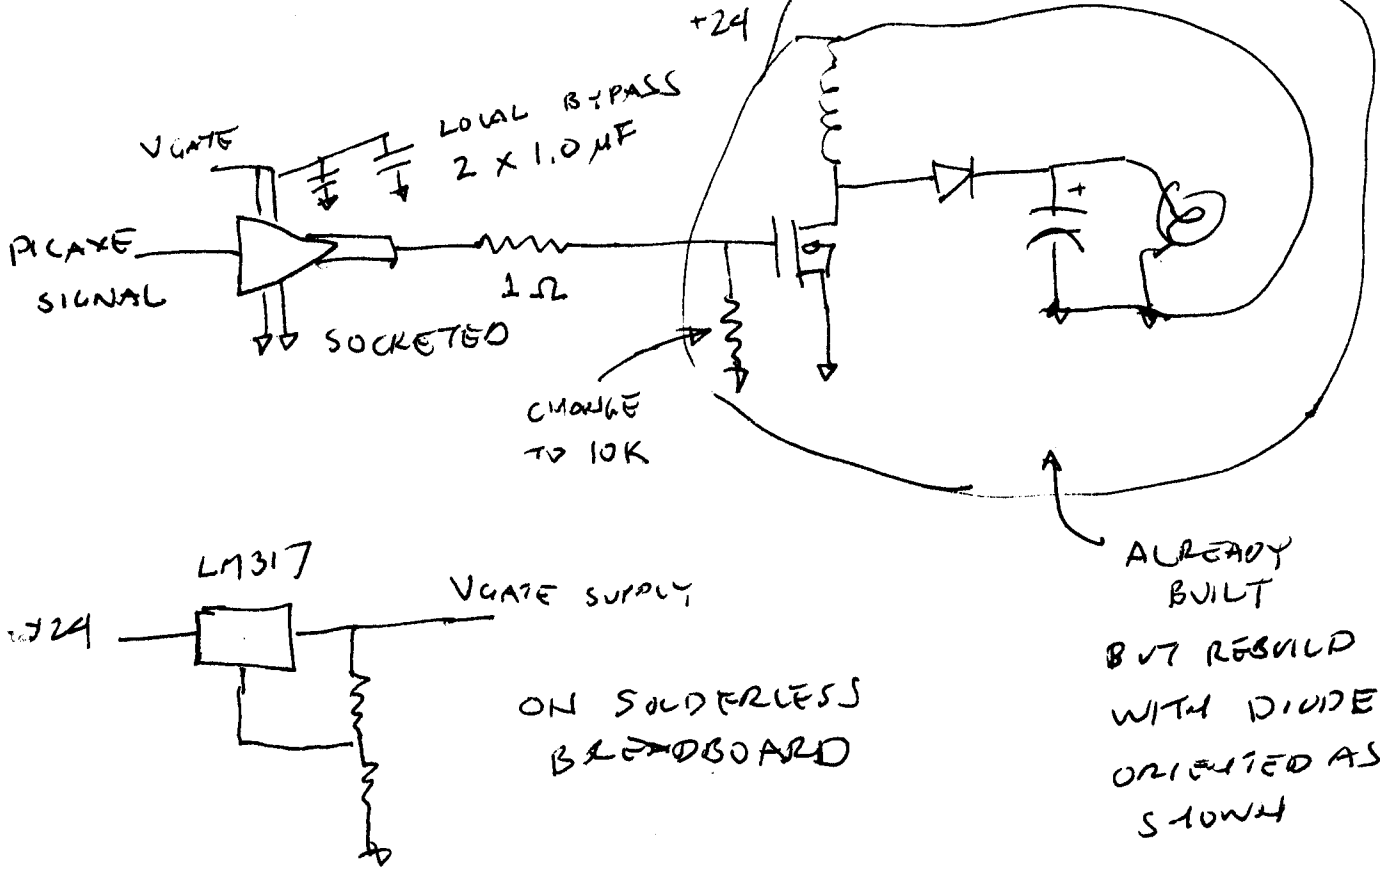 +24
LOCAL BYPASS
2 x 1.0 µF
VGATE
PICAXE
SIGNAL
1 Ω
SOCKETED
+
CHANGE
TO 10K
LM317
+24
VGATE SUPPLY
ON SOLDERLESS
BREADBOARD
ALREADY
BUILT
BUT REBUILD
WITH DIODE
ORIENTED AS
SHOWN